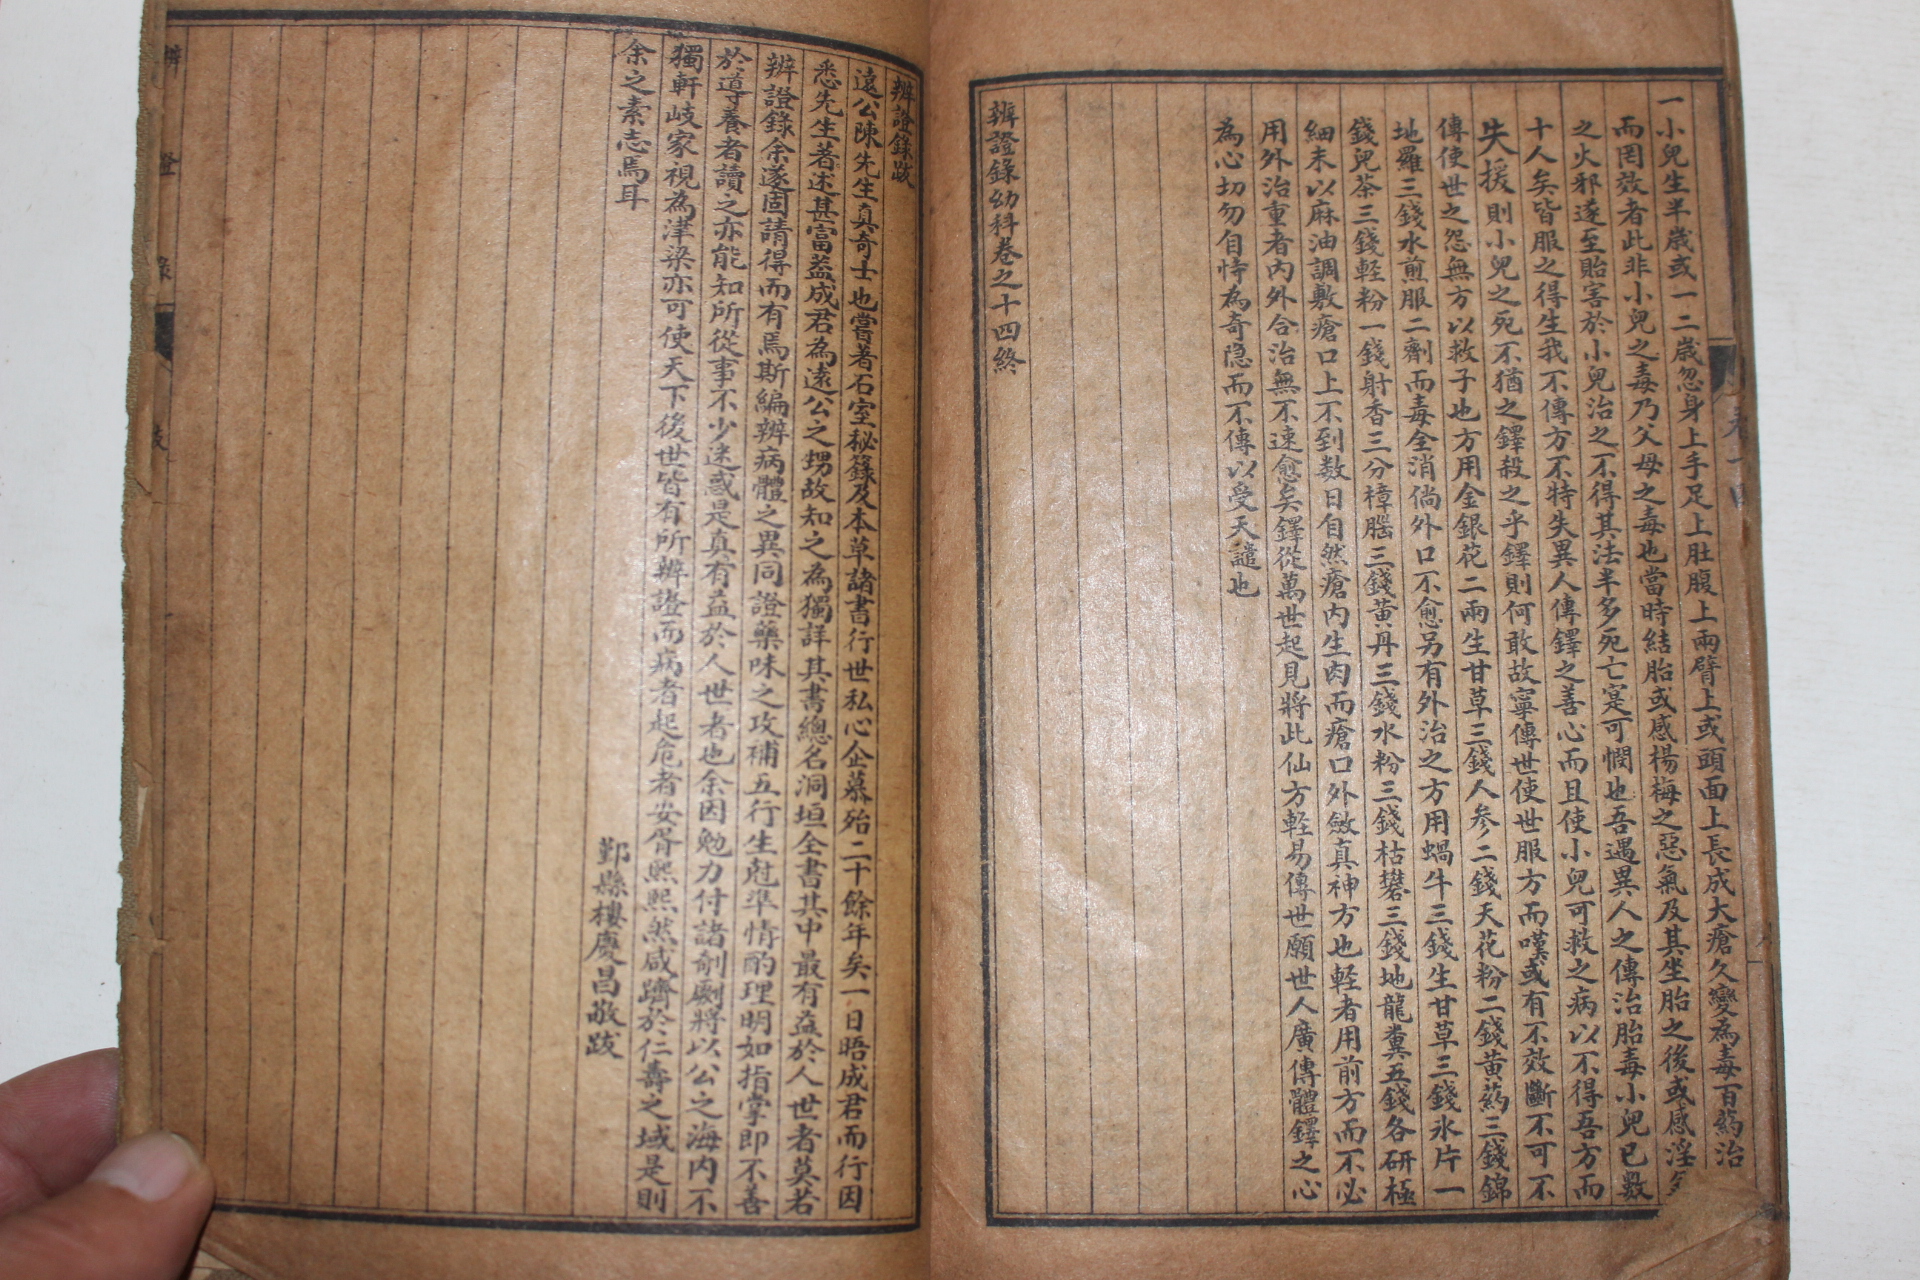 一小兒生半歲或一二歲忽身上手足上肚腹上兩臂上或頭面上長成大瘡久變為毒百药治
而罔效者此非小兒之毒乃父母之毒也當時結胎或感楊梅之惡氣及其坐胎之後或感淫
之火邪遂至貽害於小兒治之不得其法半多死亡寔可憫也吾遇異人之傳治胎毒小兒已數
十人矣皆服之得生我不傳方不特失異人傳鐸之善心而且使小兒可救之病以不得吾方而
失援則小兒之死不猶之鐸殺之乎鐸則何敢故寧傳世使世服方而嘆或有不效斷不可不
傳使世之怨無方以救子也方用金銀花二兩生甘草三錢人参二錢天花粉二錢黄药三錢錦
地羅三錢水煎服二劑而毒全消倘外口不愈另有外治之方用蝸牛三錢生甘草三錢氷片一
錢兒茶三錢輕粉一錢射香三分樟腦三錢黄丹三錢水粉三錢枯礬三錢地龍糞五錢各研極
細末以麻油調敷瘡口上不到数日自然瘡内生肉而瘡口外斂真神方也軽者用前方而不必
用外治重者内外合治無不速愈矣鐸從萬世起見將此仙方軽易傳世願世人廣傳體鐸之心
為心切勿自恃為奇隐而不傳以受天譴也
辨證錄幼科卷之十四終
辨證錄跋
遠公陳先生真奇士也嘗著石室秘籙及本草諸書行世私心企慕殆二十餘年矣一日晤成君而行因
悉先生著述甚富蓋成君為遠公之甥故知之為獨詳其書總名洞垣全書其中最有益於人世者莫若
辨證錄余遂固請得而有焉斯編辨病體之異同證藥味之攻補五行生尅準情酌理明如指掌即不善
於導養者讀之亦能知所從事不少迷惑是真有益於人世者也余因勉力付諸剞劂將以公之海内不
獨軒岐家視為津梁亦可使天下後世皆有所辨證而病者起危者安胥熙熙然咸躋於仁壽之域是則
余之素志焉耳
鄞縣樓慶昌敬跋
辨證錄
跋